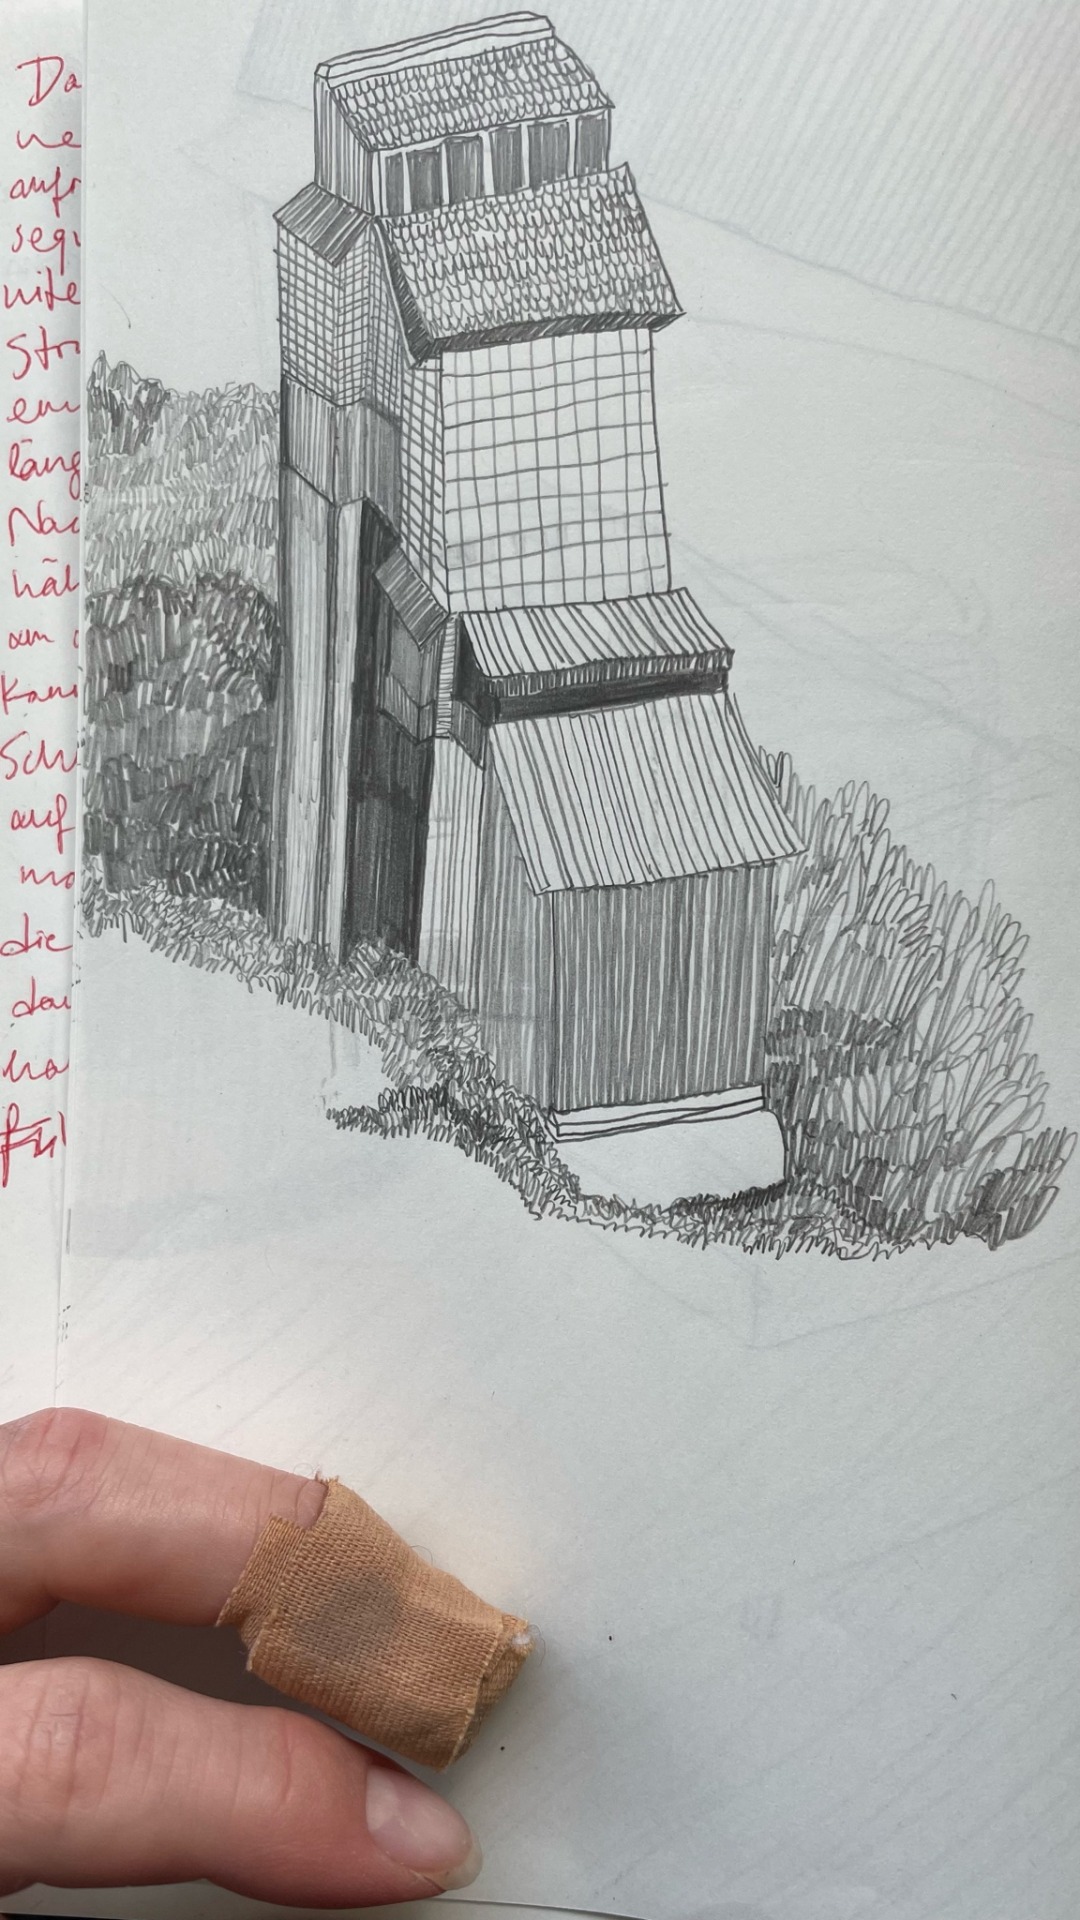 Da
ne
aufr
sequ
nite
Stru
em
läng
Nac
häl
am
Kam
Schr
auf
mo
die
den
ha
fül